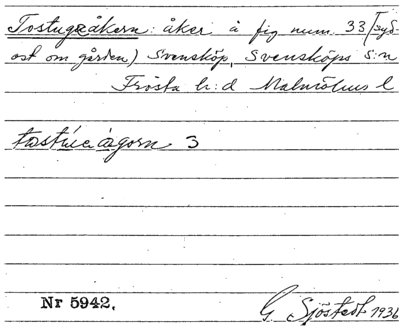 Tostugeåkern: åker å fig num. 33 (syd-
ost om gården) Svensköp, Svensköps s:n
Frosta h:d Malmöhus l
3
Nr 5942.
G. Sjöstedt 1936